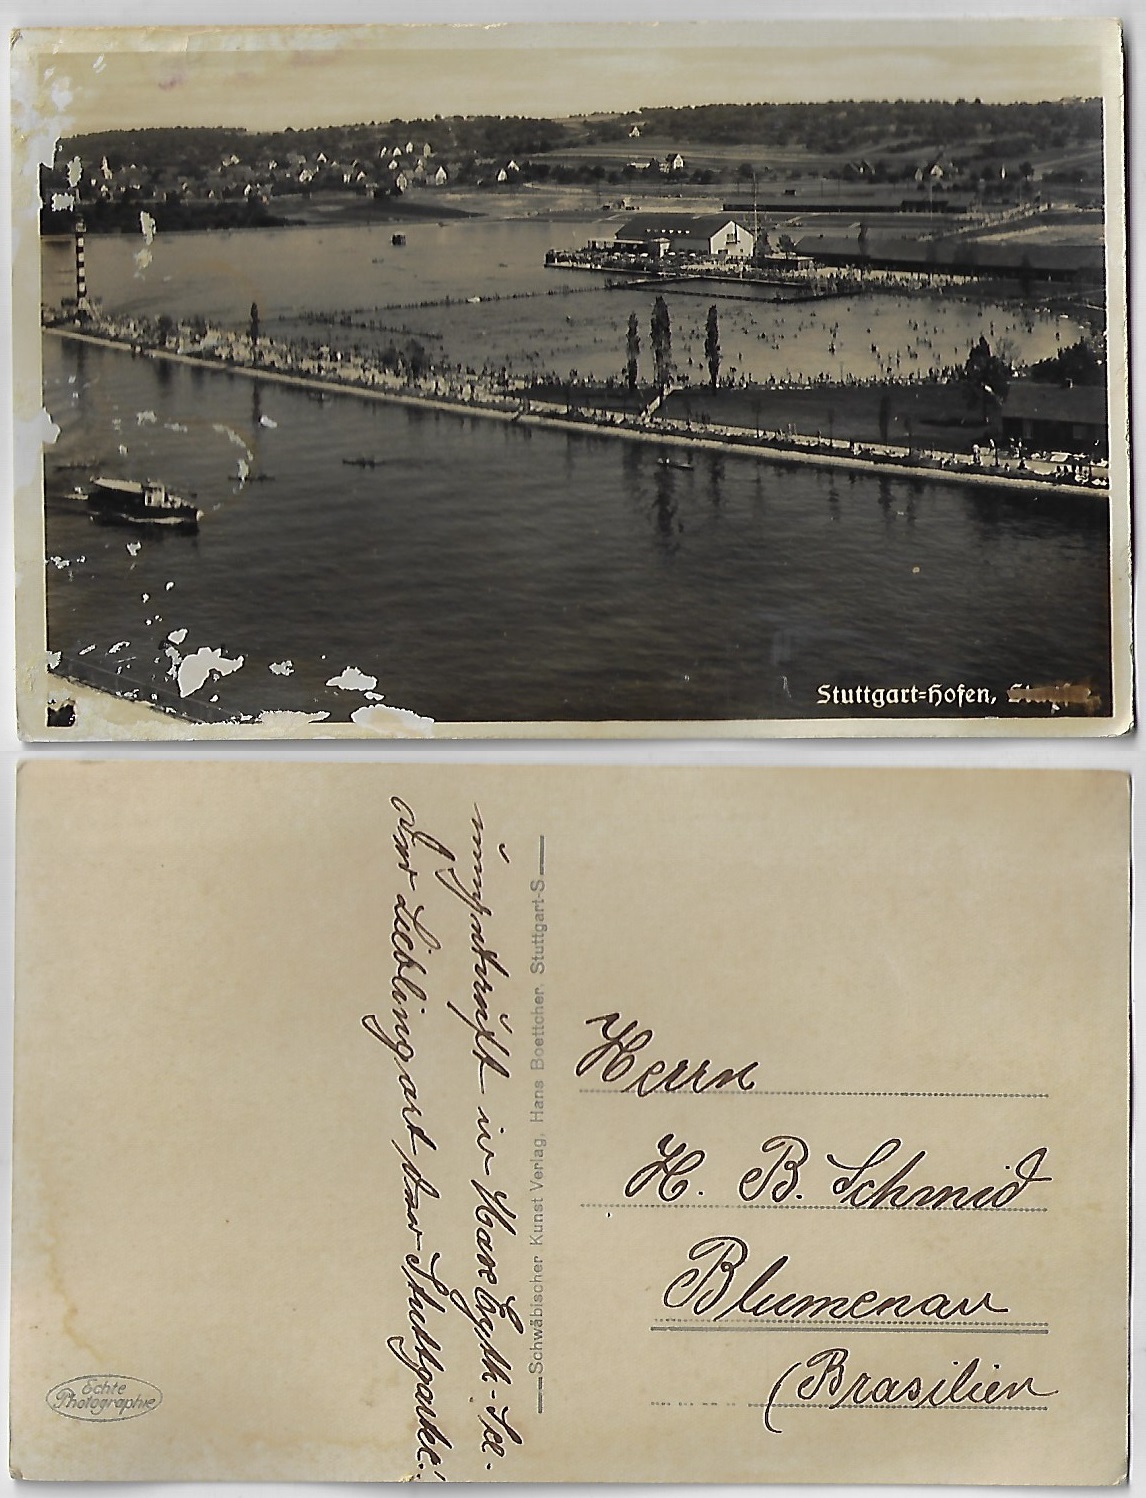 Stuttgart=Hofen,
umgetauft in Max Eyth-See.
der Lieblingsort der Stuttgarter!
Schwäbischer Kunst Verlag, Hans Boettcher, Stuttgart-S
Herrn
H. B. Schmid
Blumenau
(Brasilien
Echte
Photographie